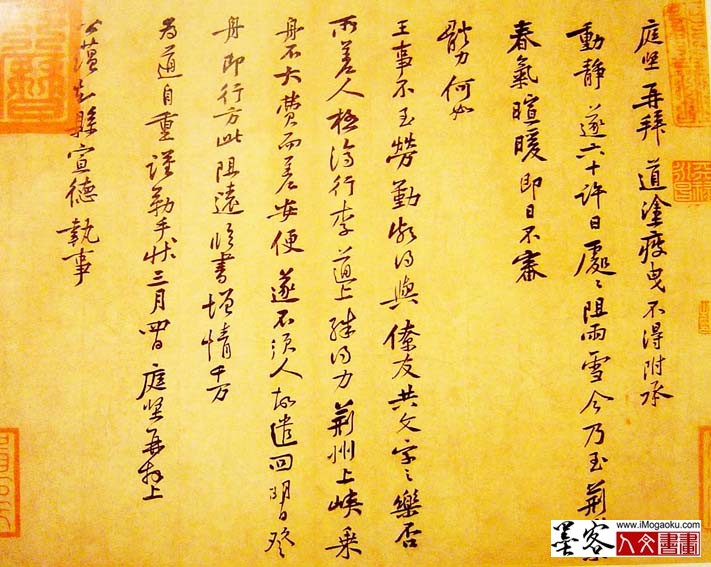 庭坚再拜道塗疲曳不得附承
動靜遂六十許日處〻阻雨雪今乃至荆州
春氣暄暖即日不審
體力何如
王事不至勞勤頗得與僚友共文字之樂否
所差人極濟行李道上殊得力荆州上峡乘
舟不大費而差安便遂不須人故遣回明日登
舟即行方此阻遠臨書增情千万
為道自重謹勒手狀三月四日庭坚再拜上
公蕴知縣宣德執事
墨客
www.iMogaoku.com
人文書畫